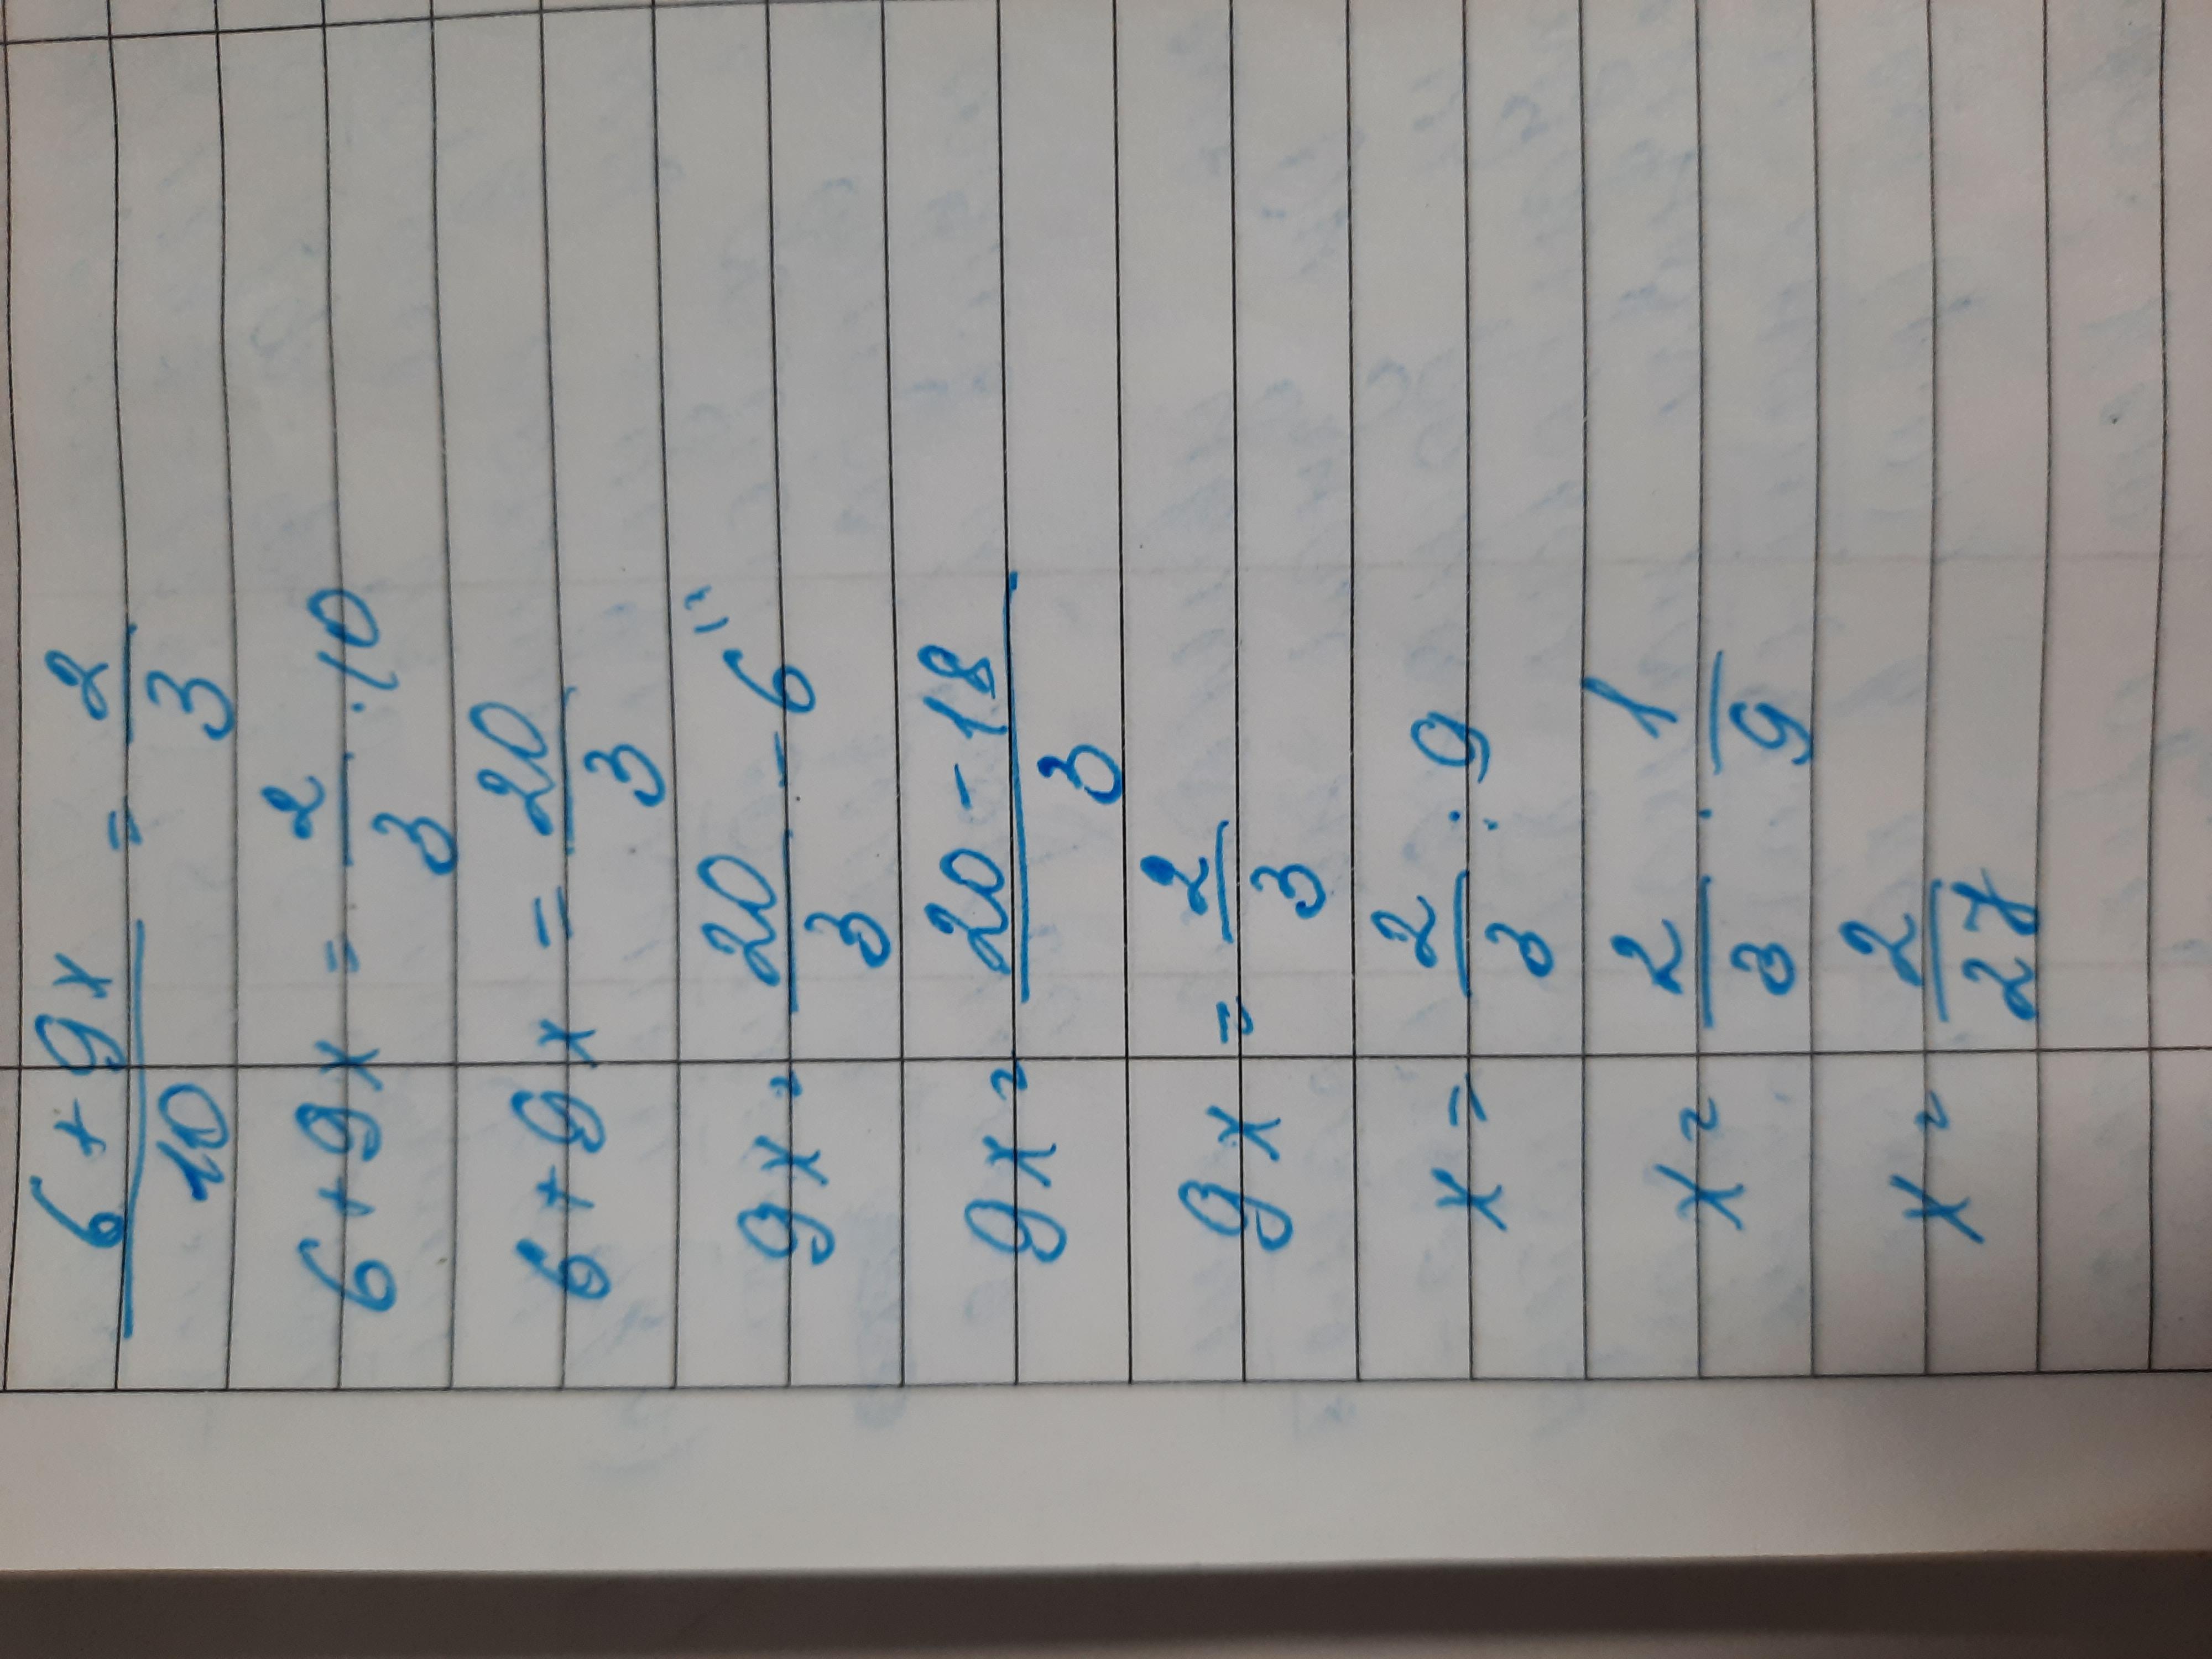 6 + 9x / 10 = 2/3
6 + 9x = 2/3 · 10
6 + 9x = 20/3
9x = 20/3 - 6
9x = 20 - 18 / 3
9x = 2/3
x = 2/3 : 9
x = 2/3 · 1/9
x = 2/27